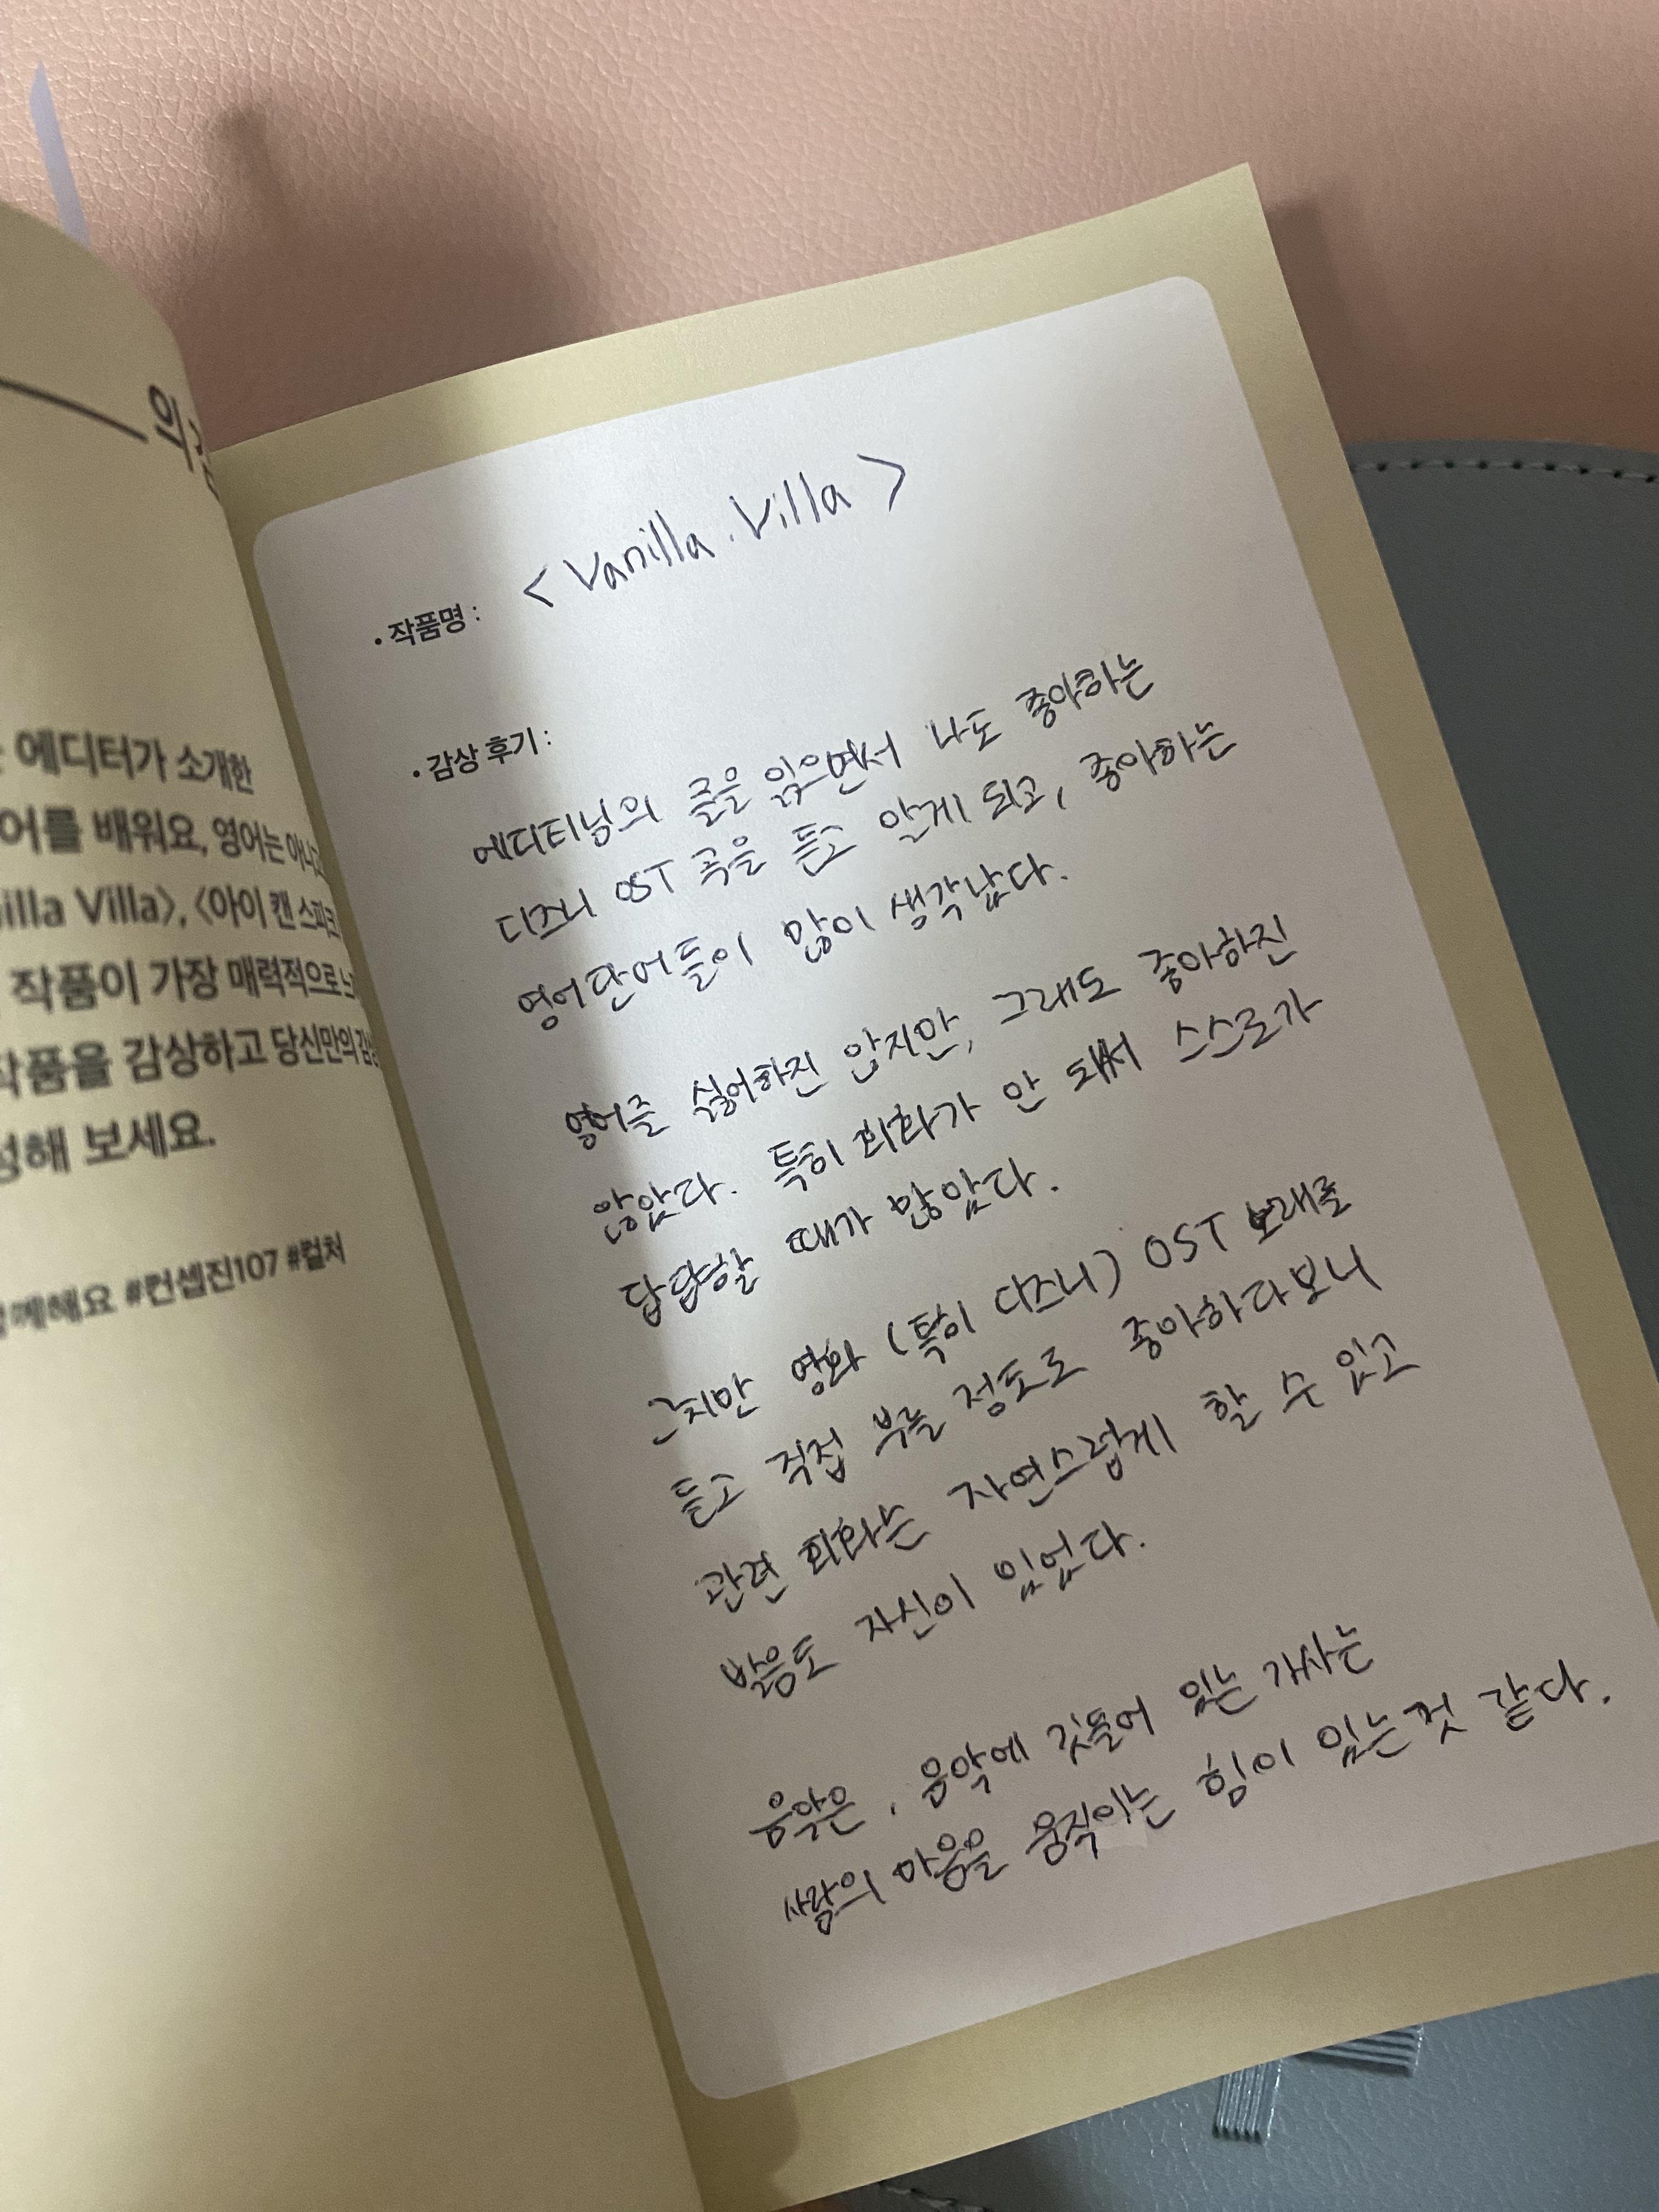 의
에디터가 소개한
어를 배워요, 영어는 아니고
illa Villa>, <아이 캔 스피크
작품이 가장 매력적으로 느
작품을 감상하고 당신만의 감상
성해 보세요.
함께해요 #컨셉진107 #컬처
• 작품명 : < Vanilla. Villa >
• 감상 후기 :
에디터님의 글을 읽으면서 나도 좋아하는
디즈니 OST 곡을 듣고 알게 되고, 좋아하는
영어단어들이 많이 생각났다.
영어를 싫어하진 않지만, 그래도 좋아하진
않았다. 특히 회화가 안 돼서 스스로가
답답할 때가 많았다.
근치만 영화 (특히 디즈니) OST 노래를
듣고 직접 부를 정도로 좋아하다보니
관련 회화는 자연스럽게 할 수 있고
발음도 자신이 있었다.
음악은, 음악에 깃들어 있는 가사는
사람의 마음을 움직이는 힘이 있는것 같다.